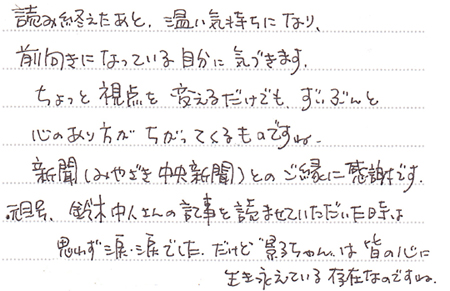 読み終えたあと、温い気持ちになり、
前向きになっている自分に気づきます。
ちょっと視点を変えるだけでも、ずいぶんと
心のあり方がちがってくるものですね。
新聞(みやざき中央新聞)とのご縁に感謝です。
元旦号、鈴木中人さんの記事を読ませていただいた時は
思わず涙・涙でした。だけど"景子ちゃん"は皆の心に
生き永えている存在なのですね。